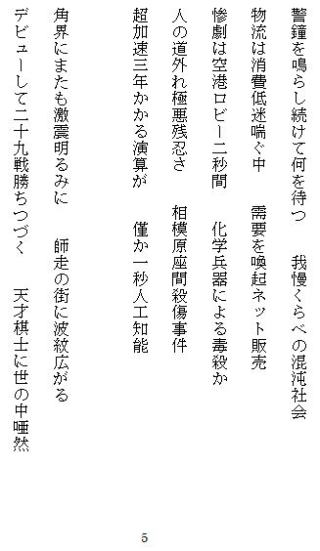 警鐘を鳴らし続けて何を待つ　我慢くらべの混沌社会
物流は消費低迷喘ぐ中　需要を喚起ネット販売
惨劇は空港ロビー二秒間　化学兵器による毒殺か
人の道外れ極悪残忍さ　相模原座間殺傷事件
超加速三年かかる演算が　僅か一秒人工知能
角界にまたも激震明るみに　師走の街に波紋広がる
デビューして二十九戦勝ちつづく　天才棋士に世の中唖然
5